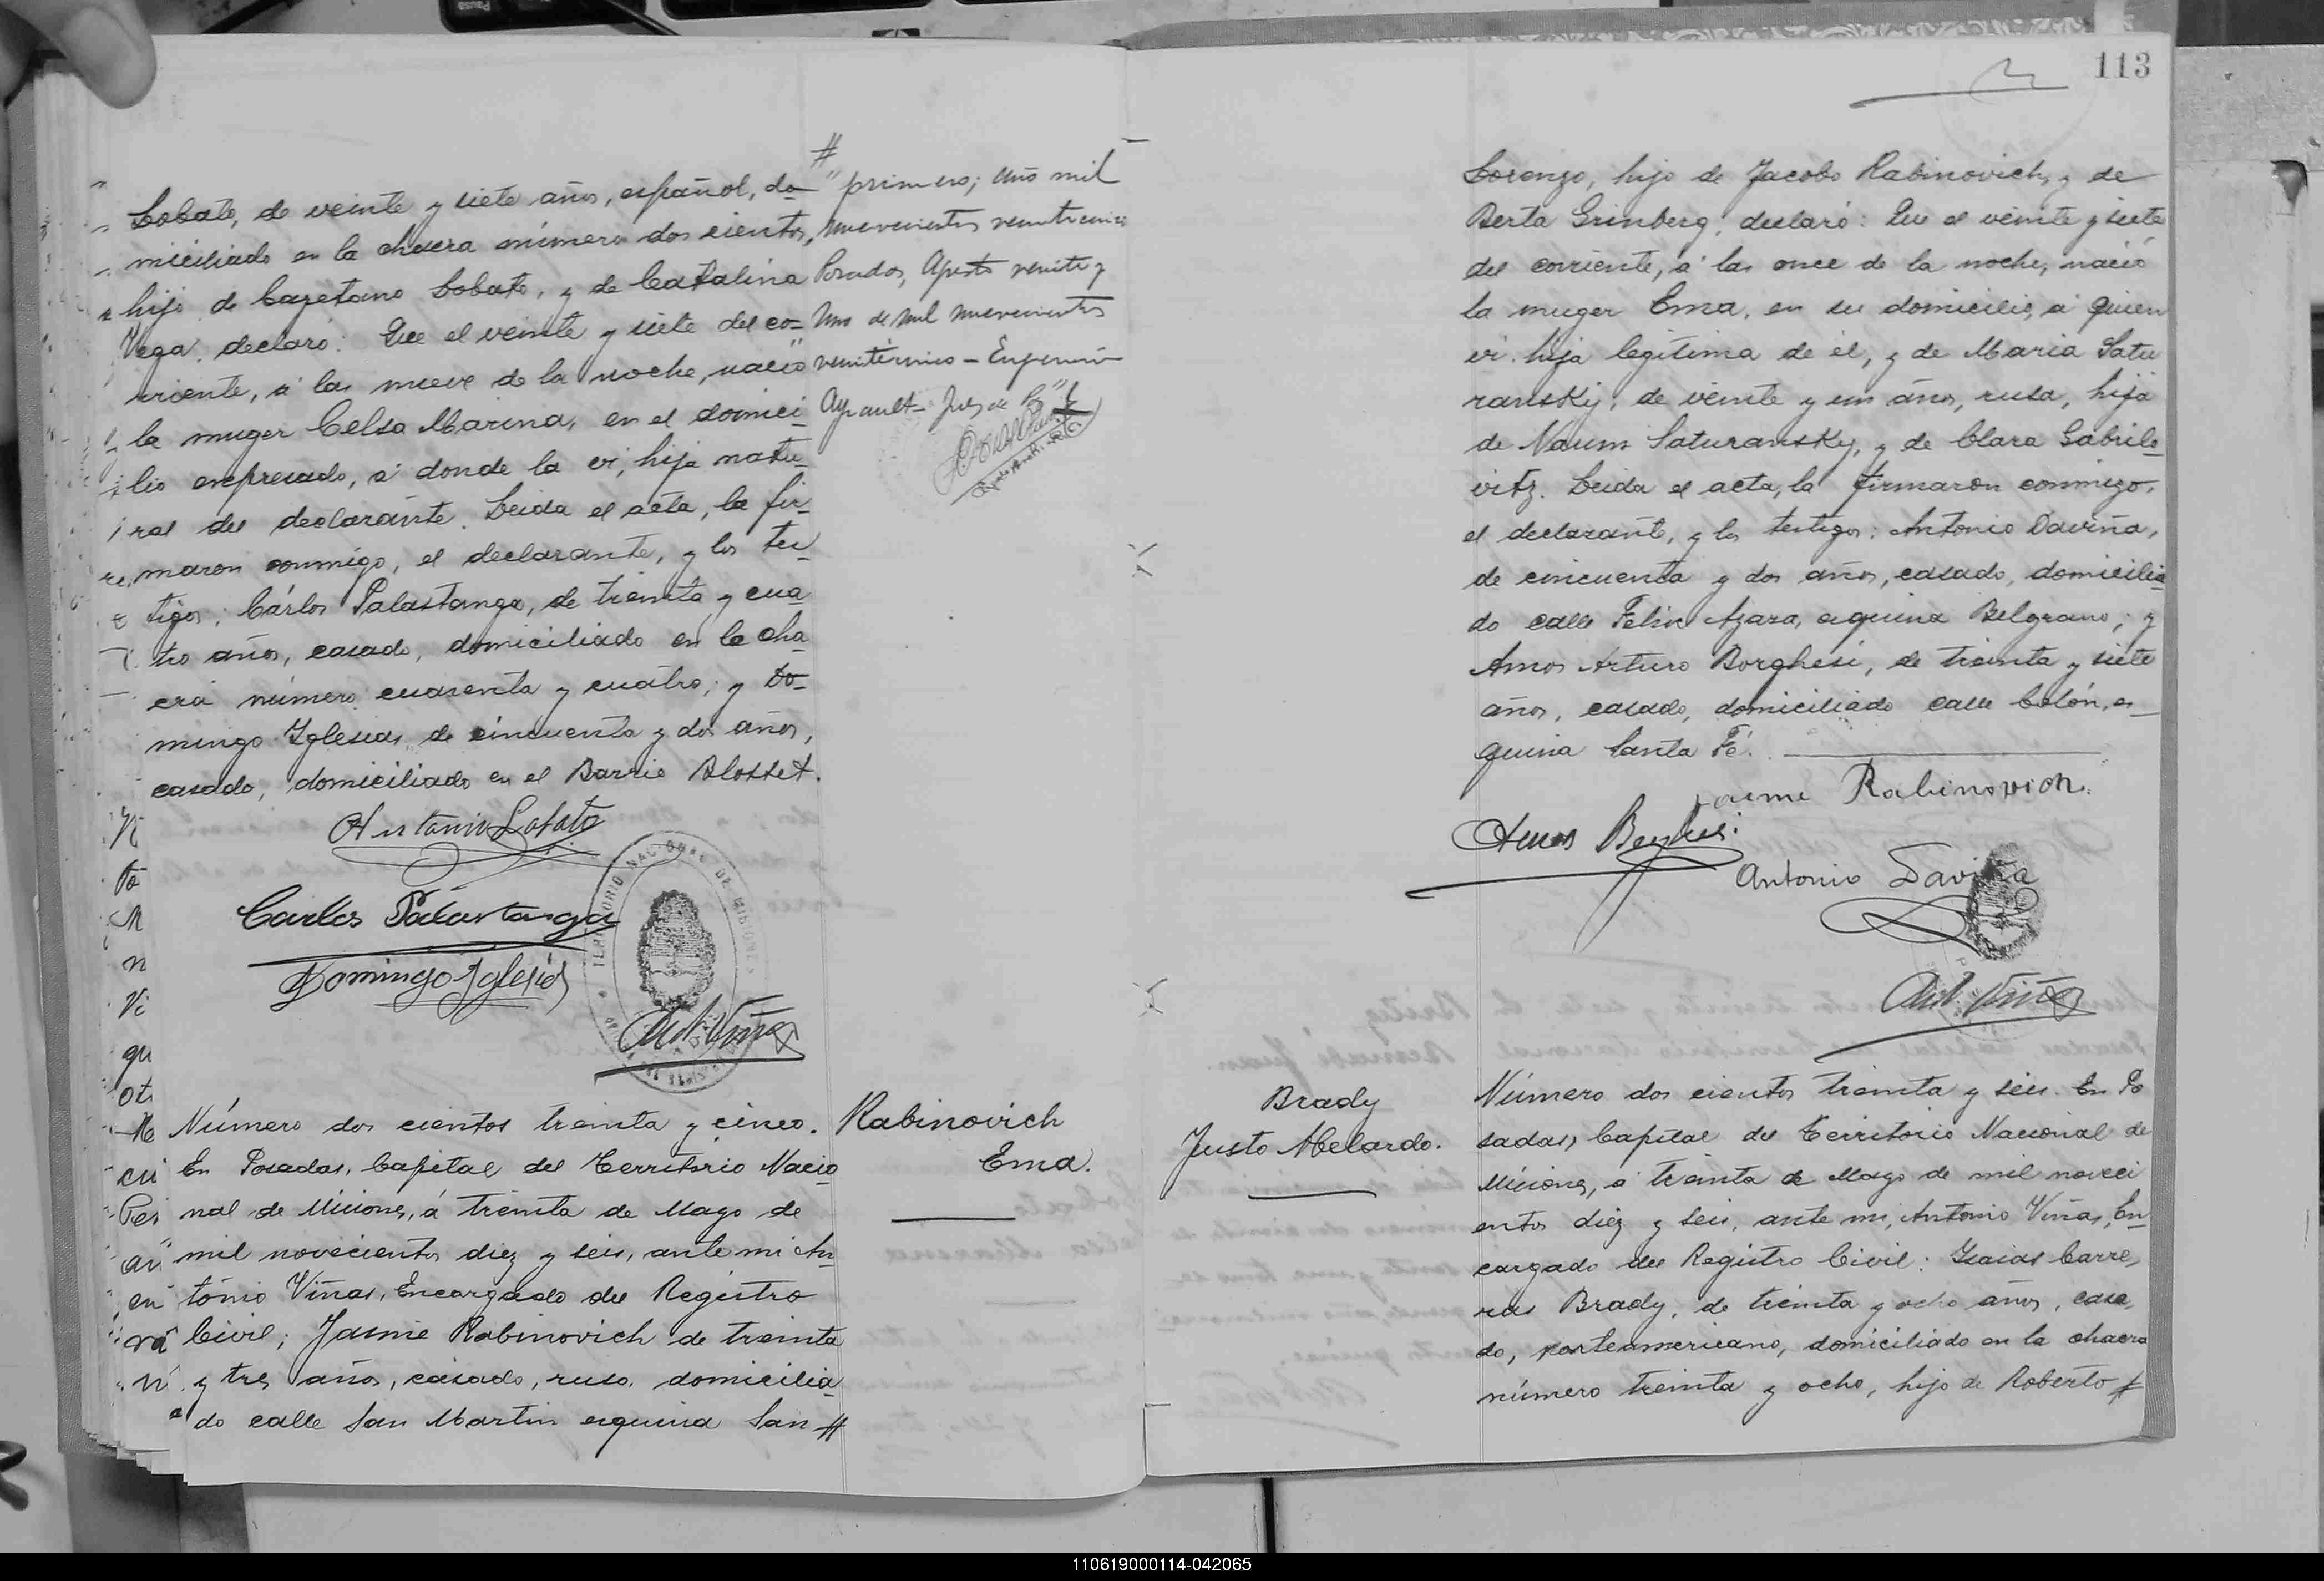 Lobato, de veinte y siete años, español, do-
miciliado en la chacra número dos cientos,
hijo de Cayetano Lobato, y de Catalina
Vega, declaró: Que el veinte y siete del co-
rriente, á las nueve de la noche, nació
la muger Celsa Marina, en el domici-
lio expresado, á donde la vi, hija natu-
ral del declarante. Leida el acta, la fir-
maron conmigo, el declarante, y los tes-
tigos: Cárlos Palastanga, de treinta y cua-
tro años, casado, domiciliado en la cha-
cra número cuarenta y cuatro; y Do-
mingo Iglesias, de cincuenta y dos años,
casado, domiciliado en el Barrio Blosset.
Antonio Lobato
Carlos Palastanga
Domingo Iglesias
Ant. Viñas
#
" primero; año mil
novecientos veinticinco
Posadas, Agosto veinte y
uno de mil novecientos
veinticinco - Eugenio
Número dos cientos treinta y cinco.
En Posadas, Capital del Territorio Nacio-
nal de Misiones, á treinta de Mayo de
mil novecientos diez y seis, ante mi An-
tónio Viñas, Encargado del Registro
Civil; Jaime Rabinovich de treinta
y tres años, casado, ruso, domicilia-
do calle San Martin esquina San #
Rabinovich
Ema.
113
Lorenzo, hijo de Jacobo Rabinovich, y de
Berta Grinberg, declaró: Que el veinte y siete
del corriente, á las once de la noche, nació
la muger Ema, en su domicilio, á quien
vi. hija legitima de él, y de Maria Satu
ransky, de veinte y un años, rusa, hija
de Naum Saturansky, y de Clara Gabrilo-
vitz. Leida el acta, la firmaron conmigo,
el declarante, y los testigos: Antonio Daviña,
de cincuenta y dos años, casado, domicilia-
do calle Felix Azara, esquina Belgrano; y
Amos Arturo Borghesi, de treinta y siete
años, casado, domiciliado calle Colón, es-
quina Santa Fé.
Jaime Rabinovich.
Amos Borghesi.
Antonio Daviña
Ant. Viñas
Brady
Justo Abelardo.
Número dos cientos treinta y seis. En Po
sadas, Capital del Territorio Nacional de
Misiones, á treinta de Mayo de mil noveci
entos diez y seis, ante mi, Antonio Viñas, En-
cargado del Registro Civil: Isaias Carre-
ras Brady, de treinta y ocho años, casa-
do, norteamericano, domiciliado en la chacra
número treinta y ocho, hijo de Roberto #
110619000114-042065